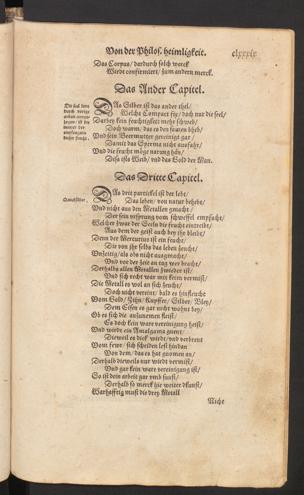 Von der Philos. heimligkeit. clxxxix
Das Corpus/ dardurch solch werck
Wirdt confirmiert/ zum andern merck.
Das Ander Capitel.
DAs Silber ist das ander theil/
Welchs Compact sey/ doch nur die seel/
Darbey kein feuchtigkeit mehr schweb/
Doch warm/ das es den samen
Und sein Beermutter gereinigt gar
Damit das Sperma nicht ausfahr/
Und die frucht möge narung hān/
Diß ists Weib/ und das Gold der Man.
Das Dritte Capitel.
Quecksilber.
DAs drit partickel ist der lebt/
Das leben/ von natur behebt
Und nicht aus den Metallen gmacht/
Der sein ursprung vom schweffel empfacht/
Welcher zwar der Seeln die frucht
Aus dem der geist auch bey ihr bleibt/
Dem der Mercurius ist ein frucht/
Die von ihr selbs das leben sucht/
Unzeitig/ als ob nicht ausgmacht/
Und vor der zeit an tag wer bracht/
Derhalb allen Metallen zwider ist/
Und sich recht war mit keim vermist/
Die Metall es wol an sich
Doch nicht vereint/ bald es hinfleucht
Vom Gold/ Zihn/ Kupffer/ Silber/ Bley/
Dem Eisen es gar nicht wohnt bey/
Ob es sich
Es doch kein ware vereinigung heist/
Und wirdt ein Amalgama gnent/
Dieweil es dick/ und verbrent
Vom fewr/ sich scheiden lest hindan
Von dem/ das es hat gnomen an/
Derhalb dieweils nur wirdt vermist/
Und gar kein ware vereinigung ist/
So ist dein arbeit gar umb sunst/
Derhalb so merck hie weiter dkunst/
Warhafftig must die drey Metall
Nicht